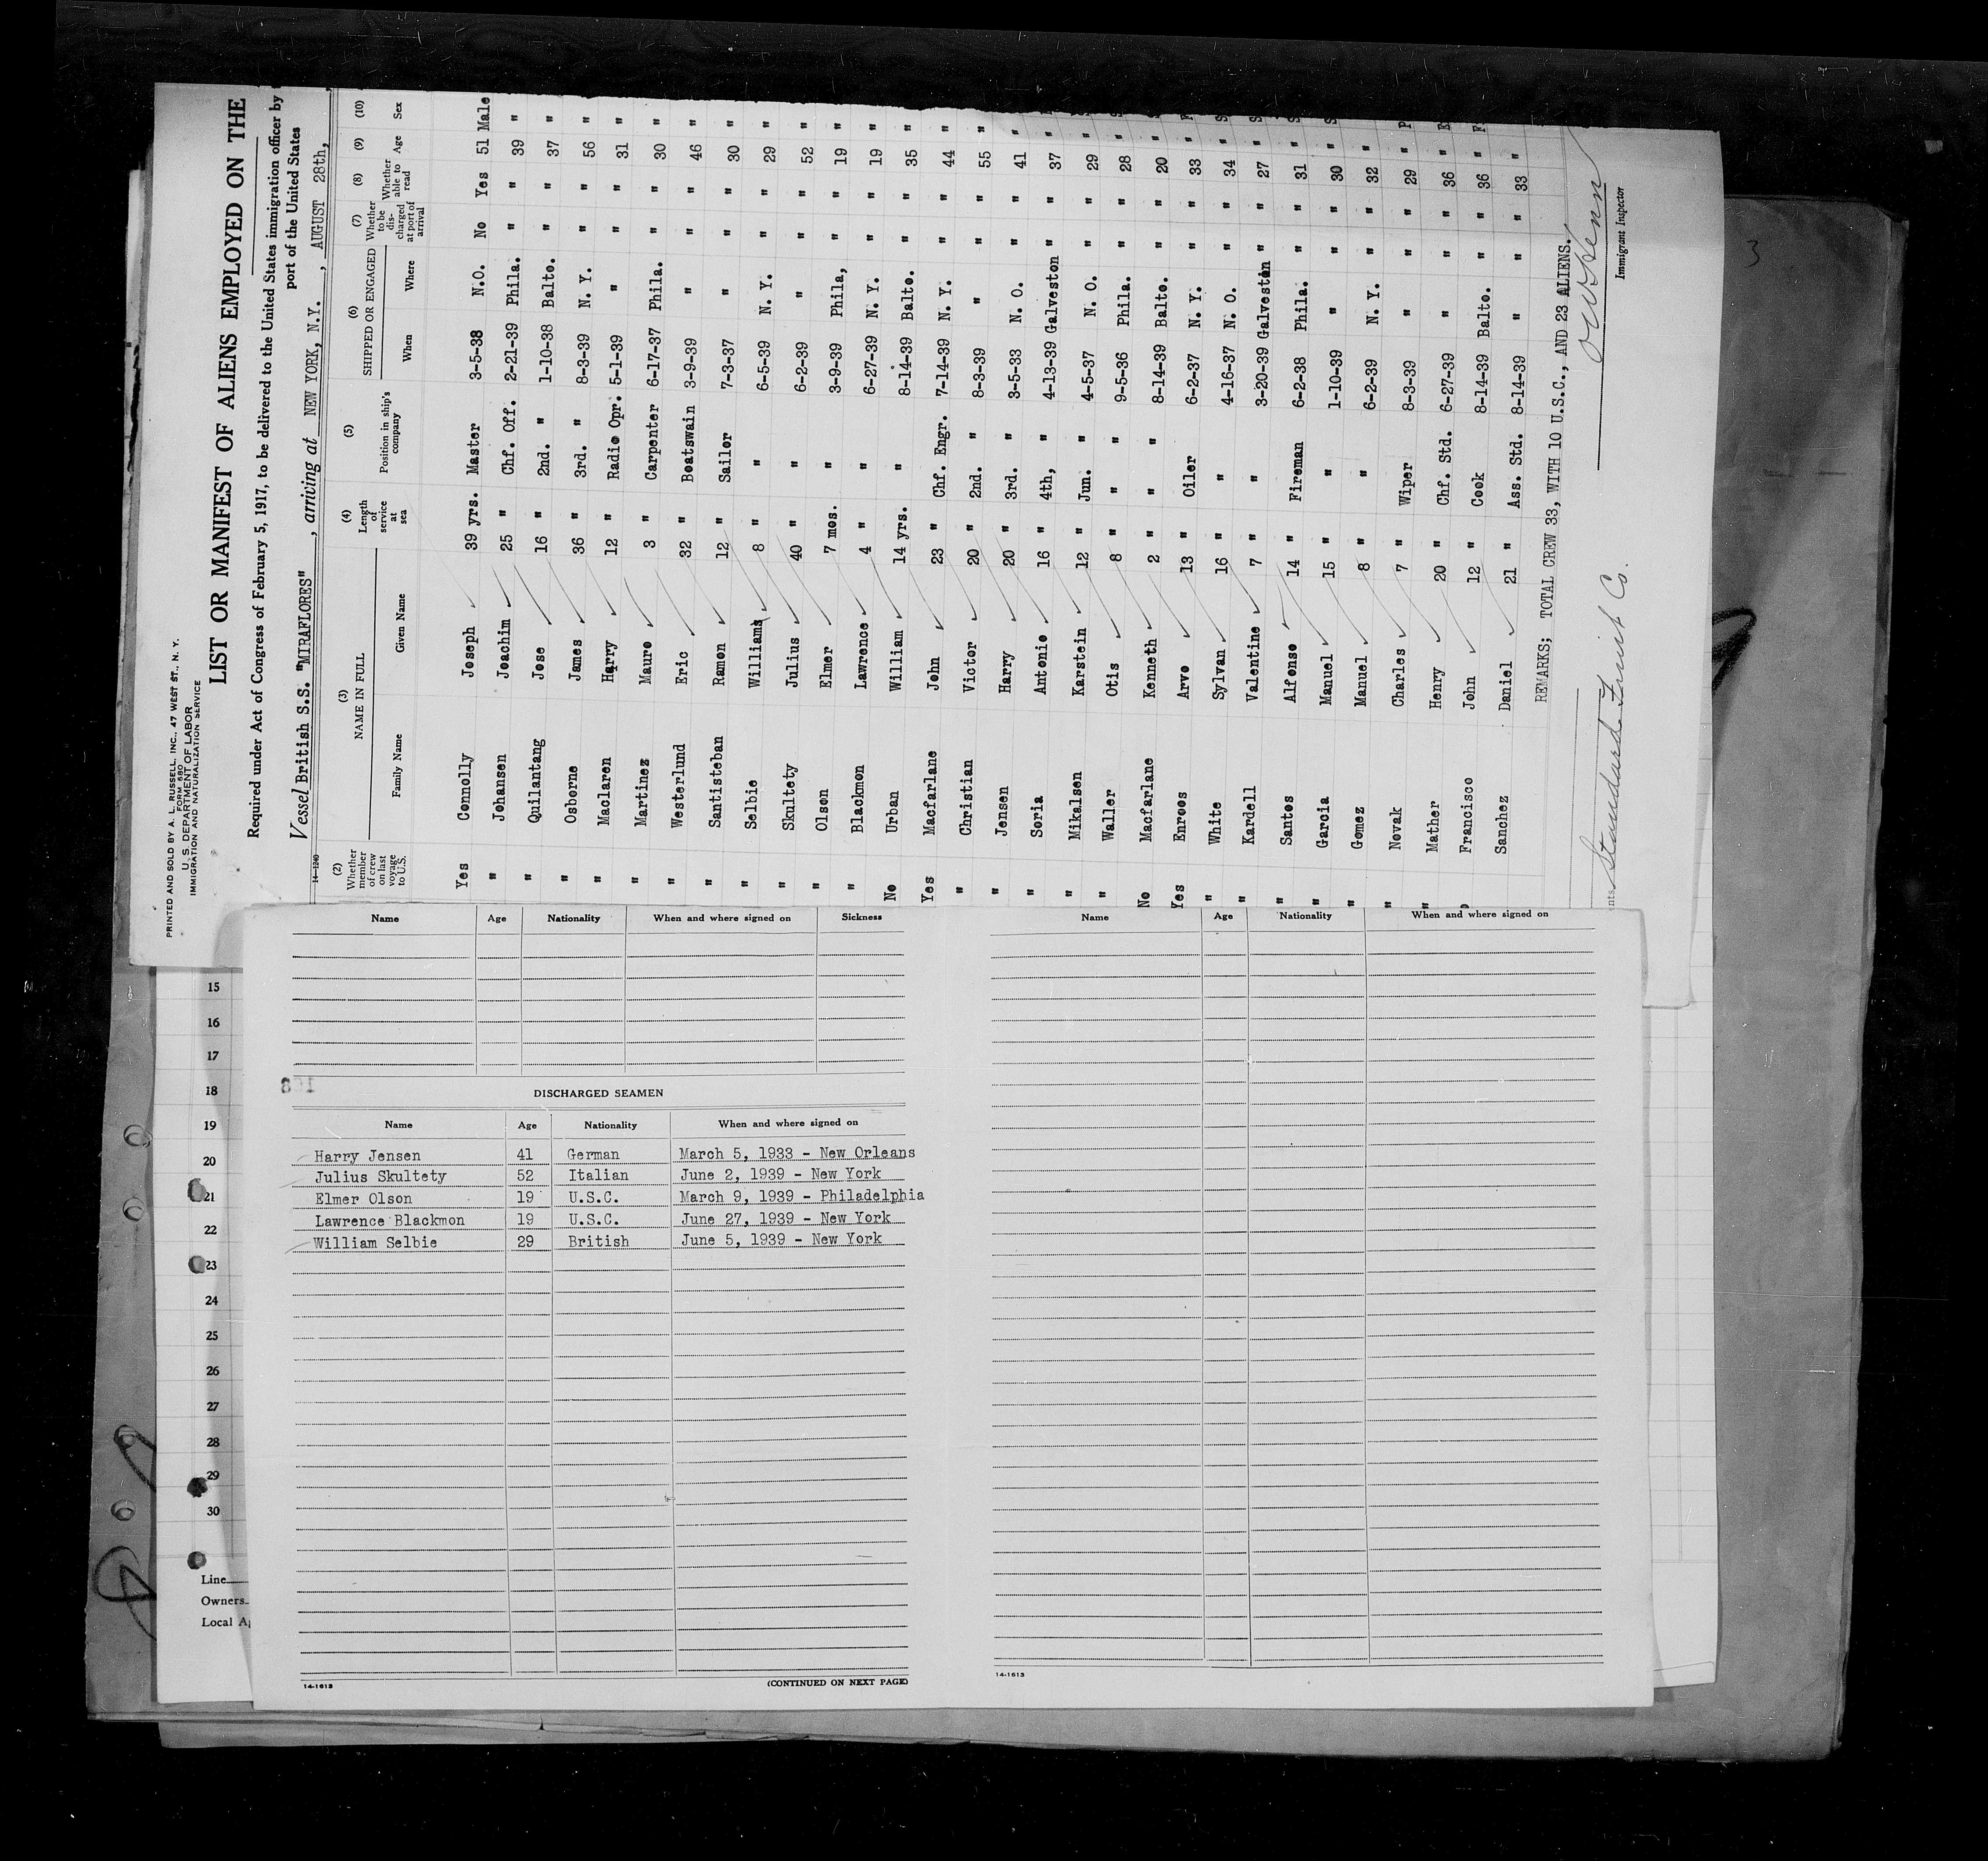 PRINTED AND SOLD BY A. L. RUSSELL, INC., 47 WEST ST., N. Y.
FORM 680
U. S. DEPARTMENT OF LABOR
IMMIGRATION AND NATURALIZATION SERVICE
LIST OR MANIFEST OF ALIENS EMPLOYED ON THE
Required under Act of Congress of February 5, 1917, to be delivered to the United States immigration officer by
port of the United States
Vessel British S.S. "MIRAFLORES", arriving at NEW YORK, N.Y., AUGUST 28th,
14-1240
(2) Whether member of crew on last voyage to U.S. (3) NAME IN FULL Family Name Given Name (4) Length of service at sea (5) Position in ship's company (6) SHIPPED OR ENGAGED When Where (7) Whether to be discharged at port of arrival (8) Whether able to read (9) Age (10) Sex
Yes Connolly Joseph 39 yrs. Master 3-5-38 N.O. No Yes 51 Male
" Johansen Joachim 25 " Chf. Off. 2-21-39 Phila. " " 39 "
" Quilantang Jose 16 " 2nd. " 1-10-38 Balto. " " 37 "
" Osborne James 36 " 3rd. " 8-3-39 N. Y. " " 56 "
" Maclaren Harry 12 " Radio Opr. 5-1-39 " " " 31 "
" Martinez Mauro 3 " Carpenter 6-17-37 Phila. " " 30 "
" Westerlund Eric 32 " Boatswain 3-9-39 " " " 46 "
" Santisteban Ramon 12 " Sailor 7-3-37 " " " 30 "
" Selbie Williams 8 " " 6-5-39 N. Y. " " 29 "
" Skultety Julius 40 " " 6-2-39 " " " 52 "
" Olson Elmer 7 mos. " 3-9-39 Phila, " " 19 "
" Blackmon Lawrence 4 " " 6-27-39 N. Y. " " 19 "
No Urban William 14 yrs. " 8-14-39 Balto. " " 35 "
Yes Macfarlane John 23 " Chf. Engr. 7-14-39 N. Y. " " 44 "
" Christian Victor 20 " 2nd. " 8-3-39 " " " 55 "
" Jensen Harry 20 " 3rd. " 3-5-33 N. O. " " 41 "
" Soria Antonio 16 " 4th, " 4-13-39 Galveston " " 37 "
" Mikalsen Karstein 12 " Jun. " 4-5-37 N. O. " " 29 "
" Waller Otis 8 " " " 9-5-36 Phila. " " 28 "
No Macfarlane Kenneth 2 " " " 8-14-39 Balto. " " 20 "
Yes Enroos Arvo 13 " Oiler 6-2-37 N. Y. " " 33 "
" White Sylvan 16 " " 4-16-37 N. O. " " 34 "
" Kardell Valentine 7 " " 3-20-39 Galveston " " 27 "
" Santos Alfonso 14 " Fireman 6-2-38 Phila. " " 31 "
" Garcia Manuel 15 " " 1-10-39 " " " 30 "
" Gomez Manuel 8 " " 6-2-39 N. Y. " " 32 "
" Novak Charles 7 " Wiper 8-3-39 " " " 29 "
" Mather Henry 20 " Chf. Std. 6-27-39 " " " 36 "
Francisco John 12 " Cook 8-14-39 Balto. " " 36 "
Sanchez Daniel 21 " Ass. Std. 8-14-39 " " " 33 "
REMARKS; TOTAL CREW 33, WITH 10 U.S.C., AND 23 ALIENS.
Immigrant Inspector
Standard Fruit Co.
15
16
17
18
19
20
21
22
23
24
25
26
27
28
29
30
Line
Owners
Local
Name Age Nationality When and where signed on Sickness
DISCHARGED SEAMEN
Name Age Nationality When and where signed on
Harry Jensen 41 German March 5, 1933 - New Orleans
Julius Skultety 52 Italian June 2, 1939 - New York
Elmer Olson 19 U.S.C. March 9, 1939 - Philadelphia
Lawrence Blackmon 19 U.S.C. June 27, 1939 - New York
William Selbie 29 British June 5, 1939 - New York
14-1613
(CONTINUED ON NEXT PAGE)
Name Age Nationality When and where signed on
14-1613
3